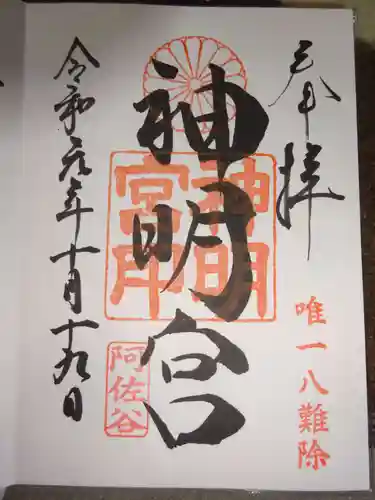 奉拝
唯一八難除
神明宮
神明宮印
阿佐谷
令和元年十月十九日